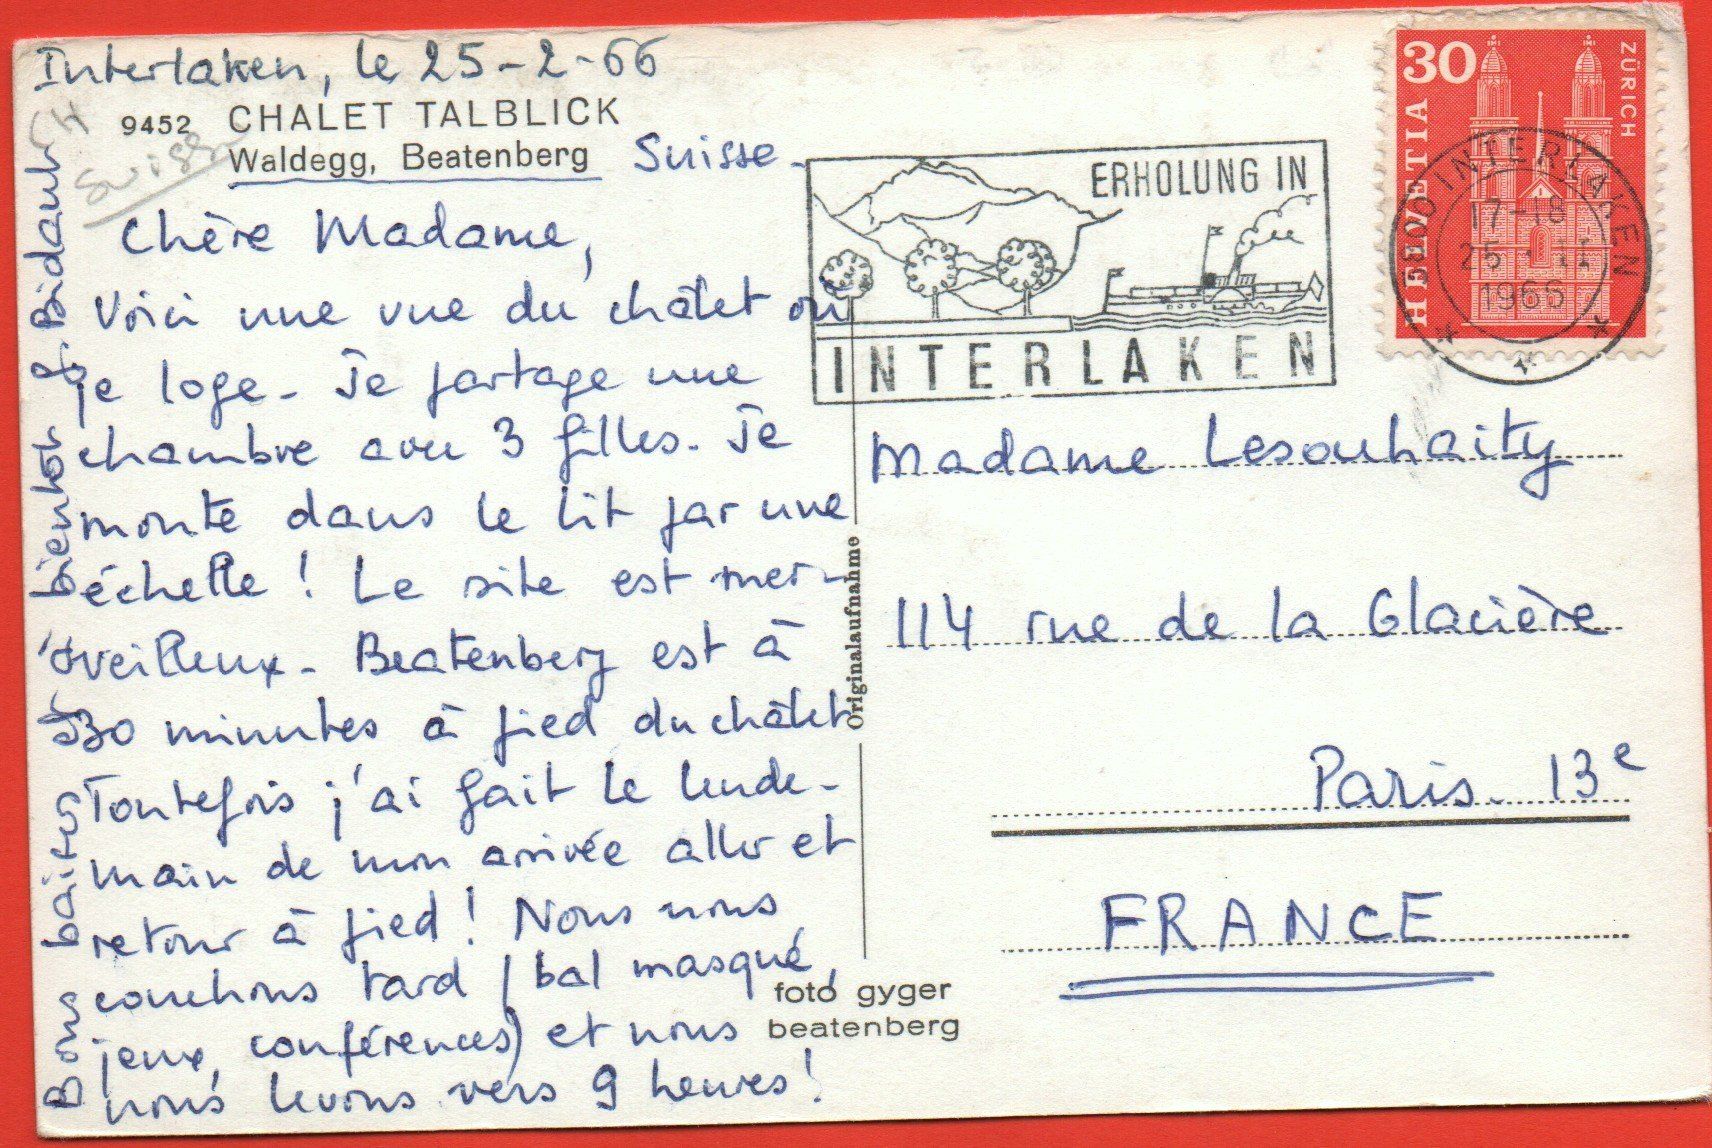 Interlaken, le 25-2-66
9452 CHALET TALBLICK
Waldegg, Beatenberg Suisse-
Suisse
Chère Madame,
Voici une vue du châlet ou
je loge- Je partage une
chambre avec 3 filles- Je
monte dans le lit par une
échelle ! Le site est mer-
veilleux- Beatenberg est à
30 minutes à pied du châlet
Toutefois j'ai fait le lende-
main de mon arrivée aller et
retour à pied ! Nous nous
couchons tard (bal masqué,
jeux, conférences) et nous
nous levons vers 9 heures !
Bons baisers à bientôt
Originalaufnahme
foto gyger
beatenberg
ERHOLUNG IN
INTERLAKEN
30
ZÜRICH
HELVETIA
INTERLAKEN
17-18
25. II
1966
Madame Lesouhaity
114 rue de la Glacière
Paris. 13e
FRANCE